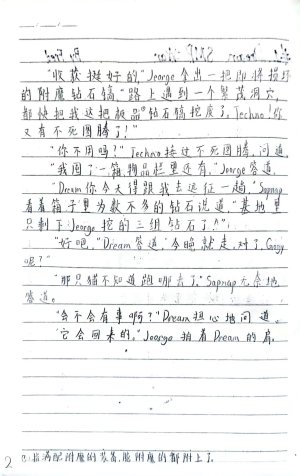 "收获挺好的," Jeorge 拿出一把即将损坏
的附魔钻石镐,"路上遇到一个繁茂洞穴,
都快把我这把极品⑧钻石镐挖废了, Techno! 你
又有不死图腾了!"
"你不用吗?" Techno 接过不死图腾,问道
"我囤了一箱,物品栏里还有," Jeorge 答道.
"Dream 你今天得跟我去远征一趟," Sapnap
看着箱子里为数不多的钻石说道"基地里
只剩下 Jeorge 挖的三组钻石了!"
"好吧," Dream 答道"今晚就走,对了, Gogy
呢?"
"那只猫不知道跑哪去了," Sapnap 无奈地
答道。
"会不会有事啊?" Dream 担心地问道.
"它会回来的," Jeorge 拍着 Dream 的肩.
⑧指满配附魔的装备,能附魔的都附上了.
2